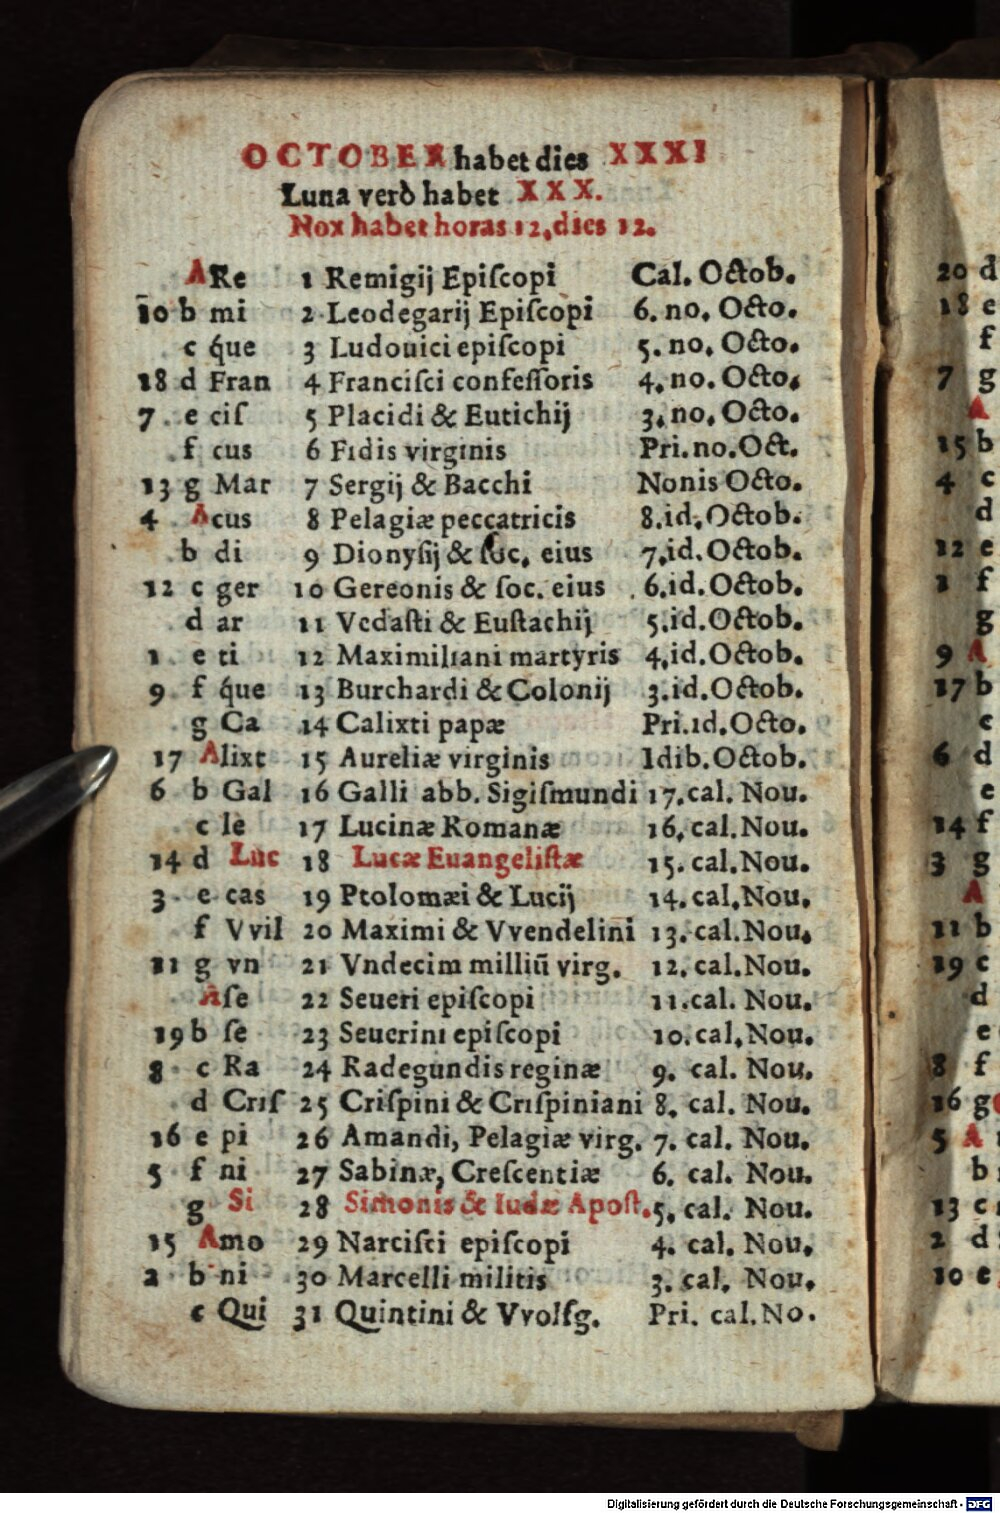 OCTOBER habet dies XXXI
Luna verò habet XXX.
Nox habet horas 12, dies 12.
A Re 1 Remigij Epiſcopi Cal. Octob.
10 b mi 2 Leodegarij Epiſcopi 6. no. Octo.
c q́ue 3 Ludouici epiſcopi 5. no. Octo.
18 d Fran 4 Franciſci confeſſoris 4. no. Octo.
7. e ciſ 5 Placidi & Eutichij 3. no. Octo.
f cus 6 Fidis virginis Pri. no. Oct.
13 g Mar 7 Sergij & Bacchi Nonis Octo.
4 A cus 8 Pelagiæ peccatricis 8. id. Octob.
b di 9 Dionyſij & ſoc. eius 7. id. Octob.
12 c ger 10 Gereonis & ſoc. eius 6. id. Octob.
d ar 11 Vedaſti & Euſtachij 5. id. Octob.
1. e ti 12 Maximiliani martyris 4. id. Octob.
9. f q́ue 13 Burchardi & Colonij 3. id. Octob.
g Ca 14 Calixti papæ Pri. id. Octo.
17 A lixt 15 Aureliæ virginis Idib. Octob.
6 b Gal 16 Galli abb. Sigiſmundi 17. cal. Nou.
c le 17 Lucinæ Romanæ 16. cal. Nou.
14 d Luc 18 Lucæ Euangeliſtæ 15. cal. Nou.
3. e cas 19 Ptolomæi & Lucij 14. cal. Nou.
f Vvil 20 Maximi & Vvendelini 13. cal. Nou.
11 g vn 21 Vndecim milliũ virg. 12. cal. Nou.
A ſe 22 Seueri epiſcopi 11. cal. Nou.
19 b ſe 23 Seuerini epiſcopi 10. cal. Nou.
8. c Ra 24 Radegundis reginæ 9. cal. Nou.
d Criſ 25 Criſpini & Criſpiniani 8. cal. Nou.
16 e pi 26 Amandi, Pelagiæ virg. 7. cal. Nou.
5 f ni 27 Sabinæ, Creſcentiæ 6. cal. Nou.
g Si 28 Simonis & Iudæ Apoſt. 5. cal. Nou.
15 A mo 29 Narciſci epiſcopi 4. cal. Nou.
2 b ni 30 Marcelli militis 3. cal. Nou.
c Qui 31 Quintini & Vvolfg. Pri. cal. No.
20 d
18 e
f
7 g
A
15 b
4 c
d
12 e
1 f
g
9 A
17 b
c
6 d
e
14 f
3 g
A
11 b
19 c
d
e
8 f
16 g
5 A
b
13 c
2 d
10 e
Digitalisierung gefördert durch die Deutsche Forschungsgemeinschaft - DFG